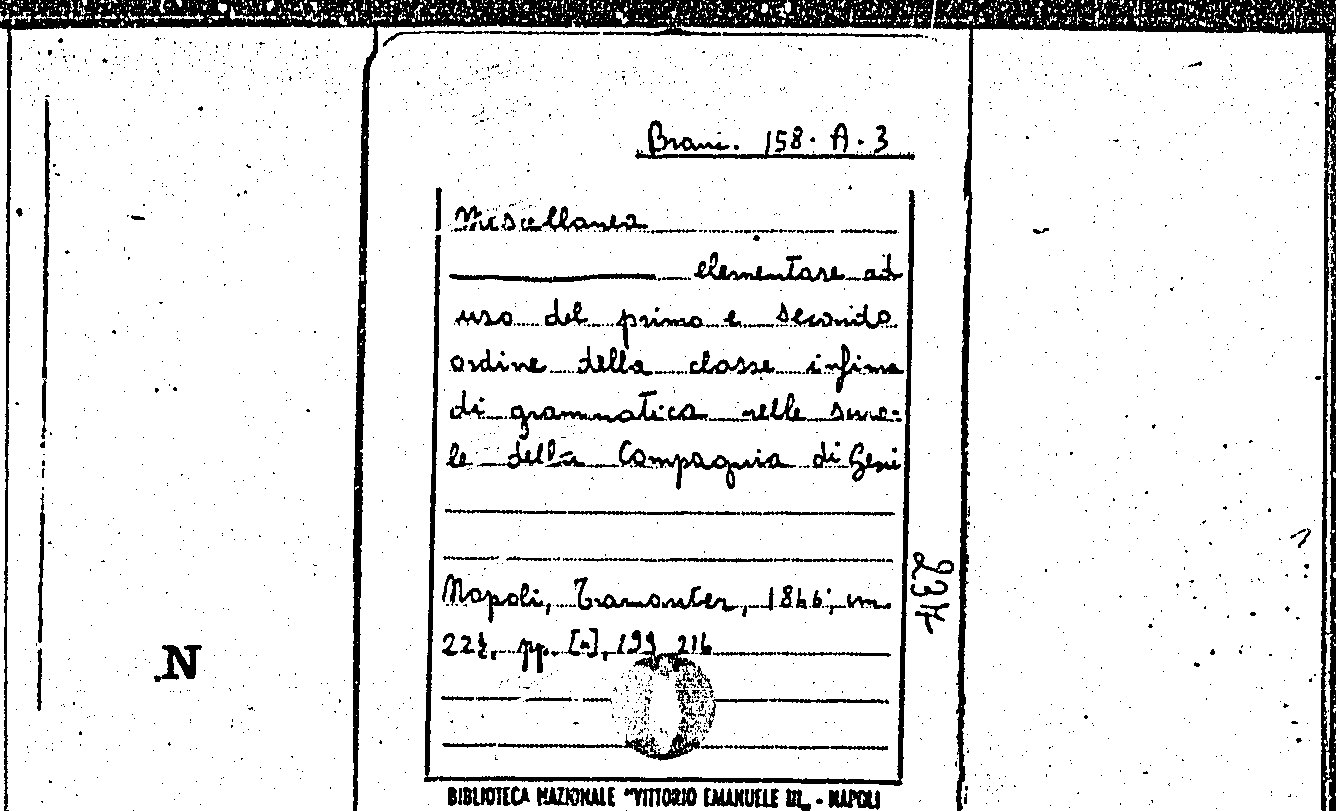 Branc. 158. A. 3
Miscellanea
elementare ad
uso del primo e secondo
ordine della classe infima
di grammatica nelle scuo=
le della Compagnia di Gesù
Napoli, Tramonter, 1846; cm
22½. pp. [4], 199 216
234
N
BIBLIOTECA NAZIONALE "VITTORIO EMANUELE III„ - NAPOLI